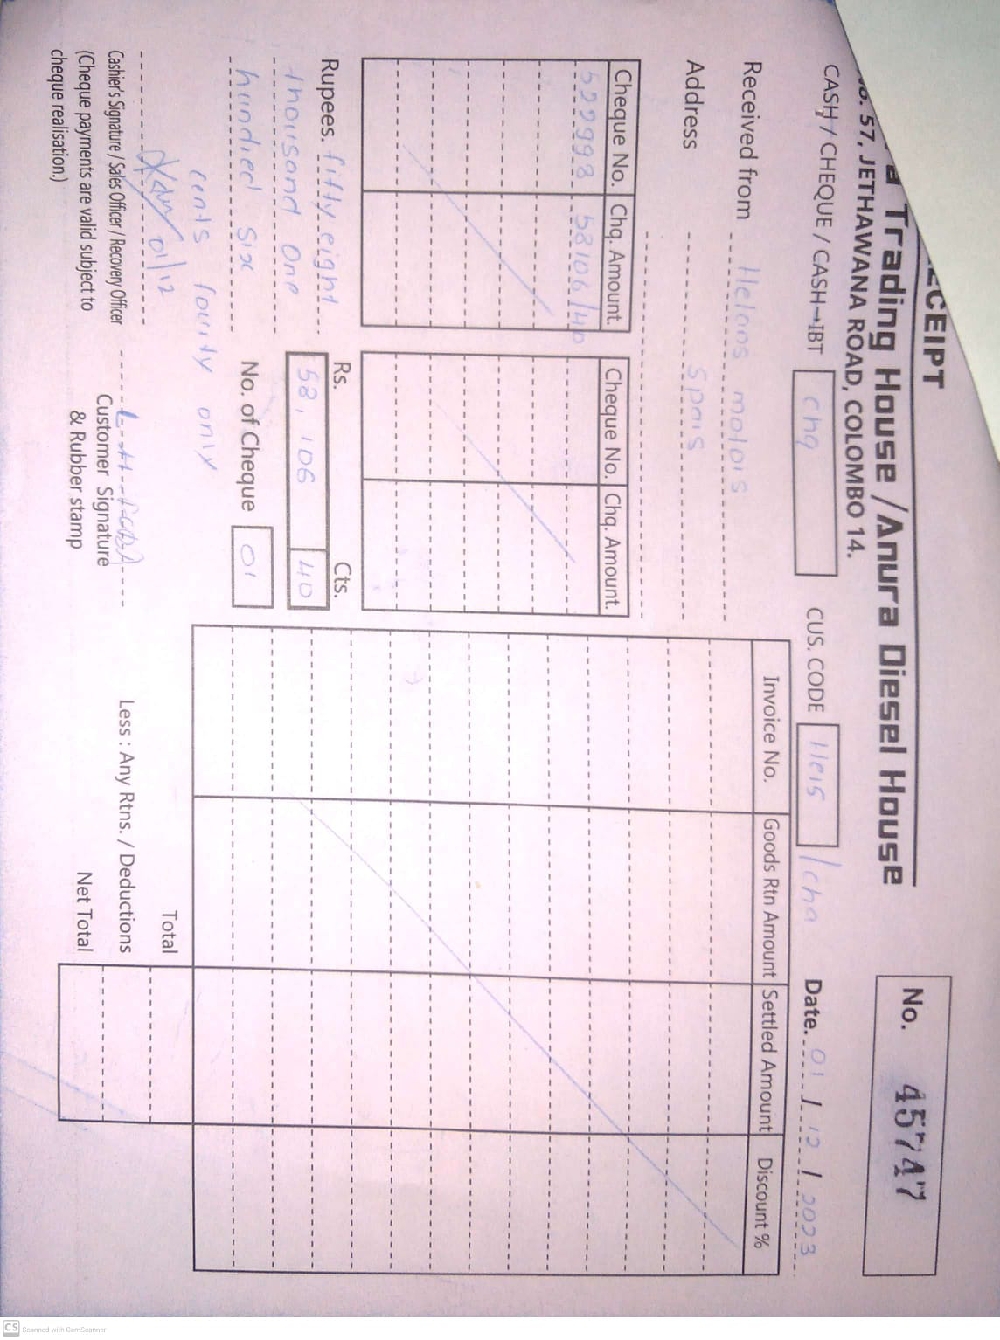 RECEIPT
a Trading House / Anura Diesel House
No. 57, JETHAWANA ROAD, COLOMBO 14.
No. 45747
CASH / CHEQUE / CASH→IBT chq
CUS. CODE / cha
Date. 01 / 12 / 2023
Received from
Address spais
Cheque No. Chq. Amount. Cheque No. Chq. Amount.
529998 58106/40
Rupees. fifty eight
thousand one
hundied six
cents fourty only
Rs. Cts.
58,106 40
No. of Cheque 01
01/12
Cashier's Signature / Sales Officer / Recovery Officer
(Cheque payments are valid subject to
cheque realisation.)
Customer Signature
& Rubber stamp
Invoice No. Goods Rtn Amount Settled Amount Discount %
Total
Less : Any Rtns. / Deductions
Net Total
CS Scanned with CamScanner